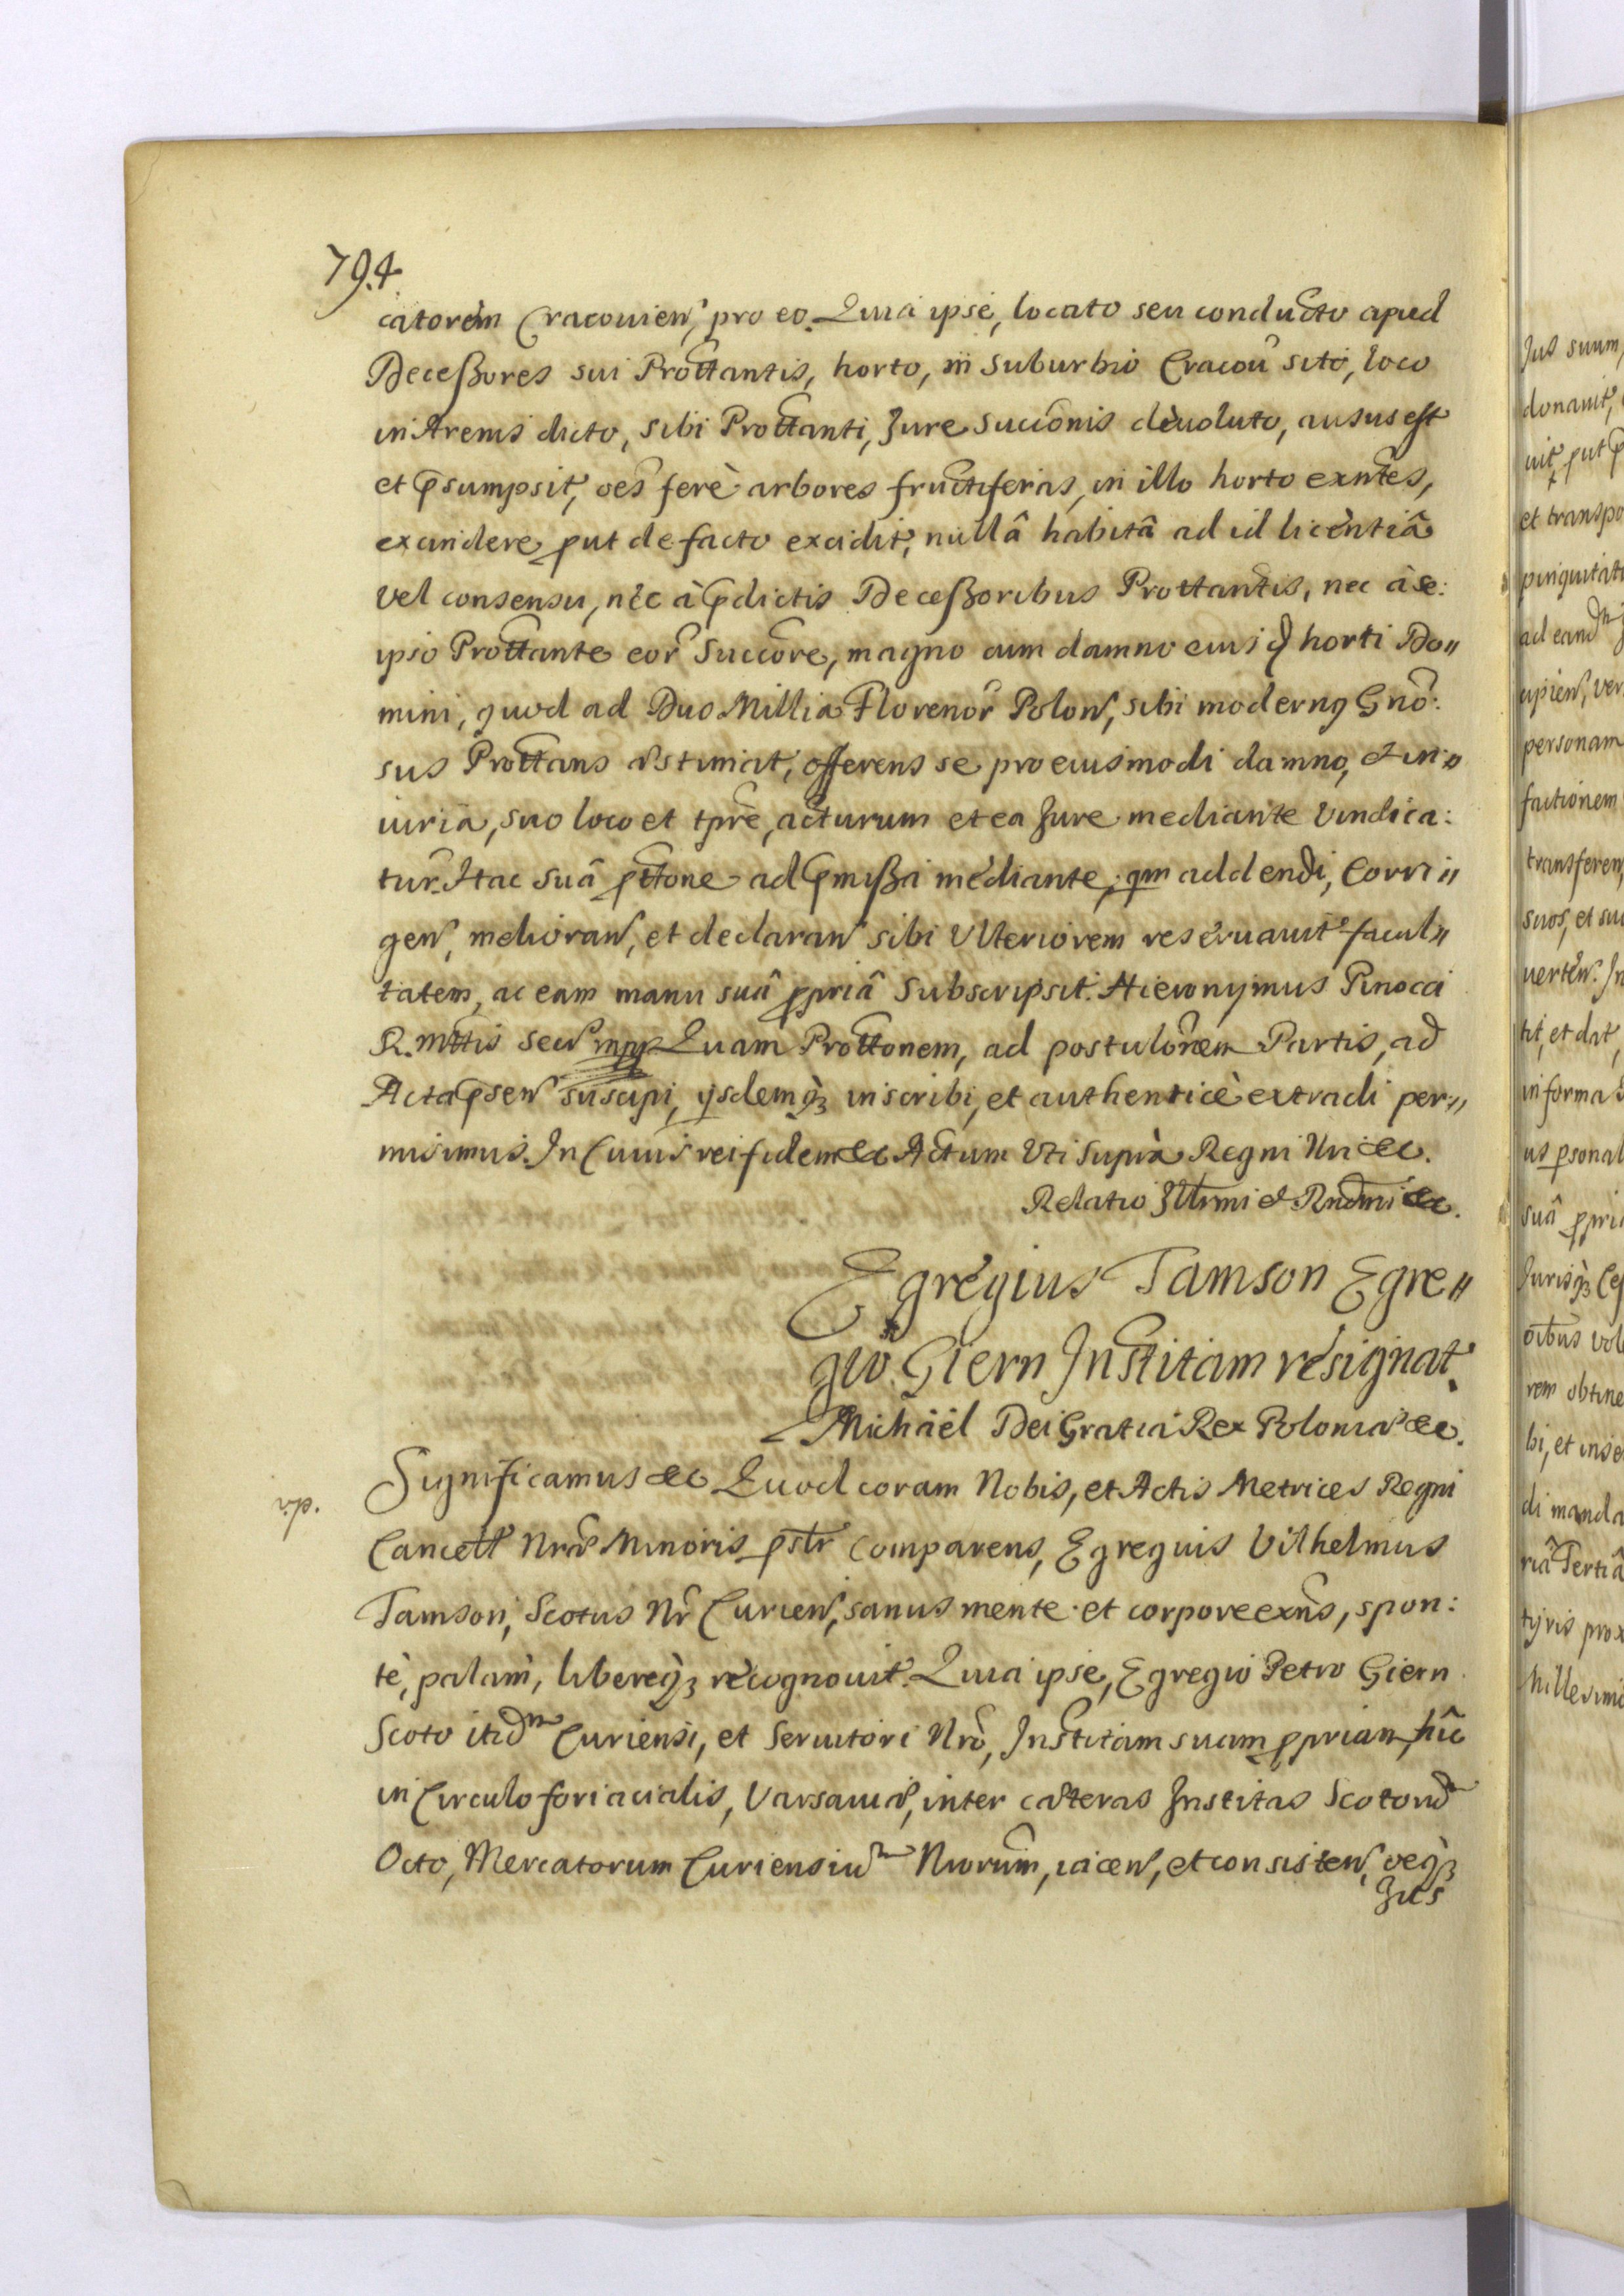 794.
catorem Cracovien, pro eo. Quia ipse, locato seu conducto apud
Deceßores sui Prottantis, horto, in suburbio Cracou sito, loco
in Arenis dicto, sibi Prottanti, Jure succionis deuoluto, ausus est
et psumpsit, oes ferè arbores fructiferas, in illo horto exntes,
excindere, put de facto excidit, nullâ habitâ ad id licentiâ
vel consensu, nec à pdictis Deceßoribus Prottantis, nec à se:
ipso Prottante eor Succore, magno cum damno eiusd horti Do"
mini, quod ad Duo Millia Florenor Polon, sibi modernq Gno:
sus Prottans æstimat, offerens se pro eiusmodi damno, et in"
iuria, suo loco et tpre, acturum et ea Jure mediante vindica:
tur. Hac suâ pttone ad pmißa mediante, qm addendi, Corri"
gen, melioran, et declaran sibi Vlteriorem reseruauit facul"
tatem, ac eam manu suâ ppriâ subscripsit. Hieronymus Pinocci
R. Mttis Secr mpp Quam Prottonem, ad postulonem Partis, ad
Acta psen suscipi, ijsdemqз inscribi, et authenticè extradi per"
misimus. In Cuius rei fidem &c Actum Vti supra Regni Nri &c.
Relatio Jllrmi & Rndmi &c.
Egregius Tamson Egre"
gio Giern Institam resignat.
Michaël Dei Gratia Rex Poloniæ &c.
Significamus &c Quod coram Nobis, et Actis Metrices Regni
Cancell Nræ Minoris pstr Comparens, Egregius Vilhelmus
Tamson, Scotus Nr Curien, sanus mente et corpore exns, spon:
tè, palam, libereqз recognouit. Quia ipse, Egregio Petro Giern
Scoto itidm Curiensi, et Seruitori Nro, Institam suam ppriam, hîc
in Circulo fori acialis, Varsauiæ, inter cæteras Institas Scotorum
Octo, Mercatorum Curiensium Nrorum, iacen, et consisten, oeqз
Jus